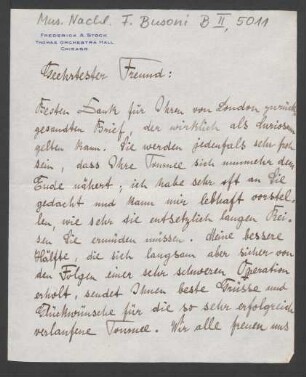 Mus. Nachl. F. Busoni B II, 5011
FREDERICK A. STOCK
THEODORE THOMAS ORCHESTRA HALL
CHICAGO
Geehrtester Freund:
Besten Dank für Ihren von London zurück
gesandten Brief, der wirklich als Curiosum
gelten kann. Sie werden jedenfalls sehr froh
sein, dass Ihre Tournee sich nunmehr dem
Ende nähert; ich habe sehr oft an Sie
gedacht und kann mir lebhaft vorstel-
len, wie sehr die entsetzlich langen Rei-
sen Sie ermüden müssen. Meine bessere
Hälfte, die sich langsam aber sicher von
den Folgen einer sehr schweren Operation
erholt, sendet Ihnen beste Grüsse und
Glückwünsche für die so sehr erfolgreich
verlaufene Tournee. Wir alle freuen uns